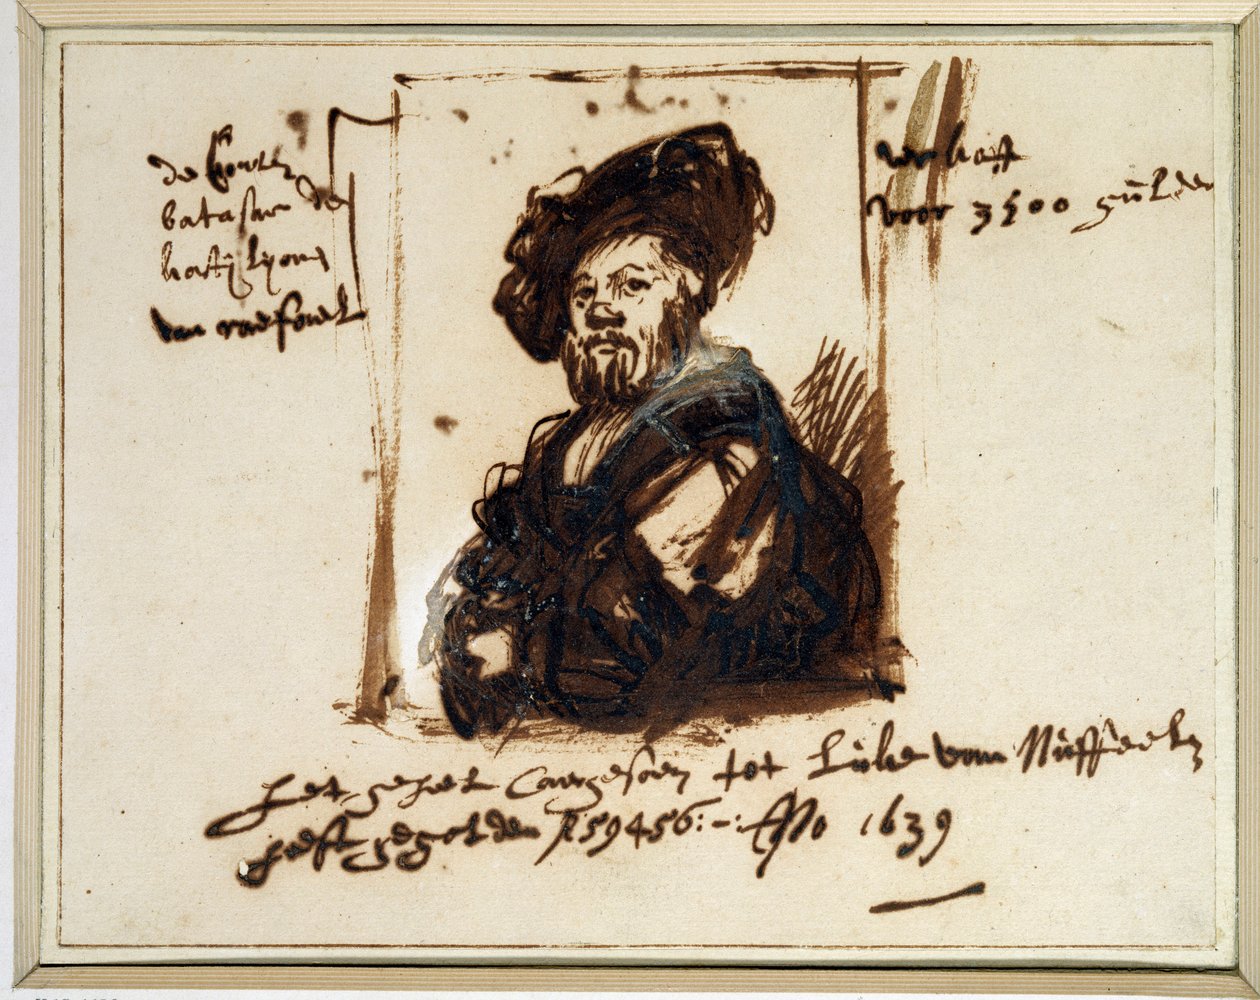 de Conte
batasar de
kastijlyone
van raefael
verkoft
voor 3500 gulden
het geheel Caergesoen tot Luke van Nuffeelen
heeft gegolden f 59456:-: Ano 1639